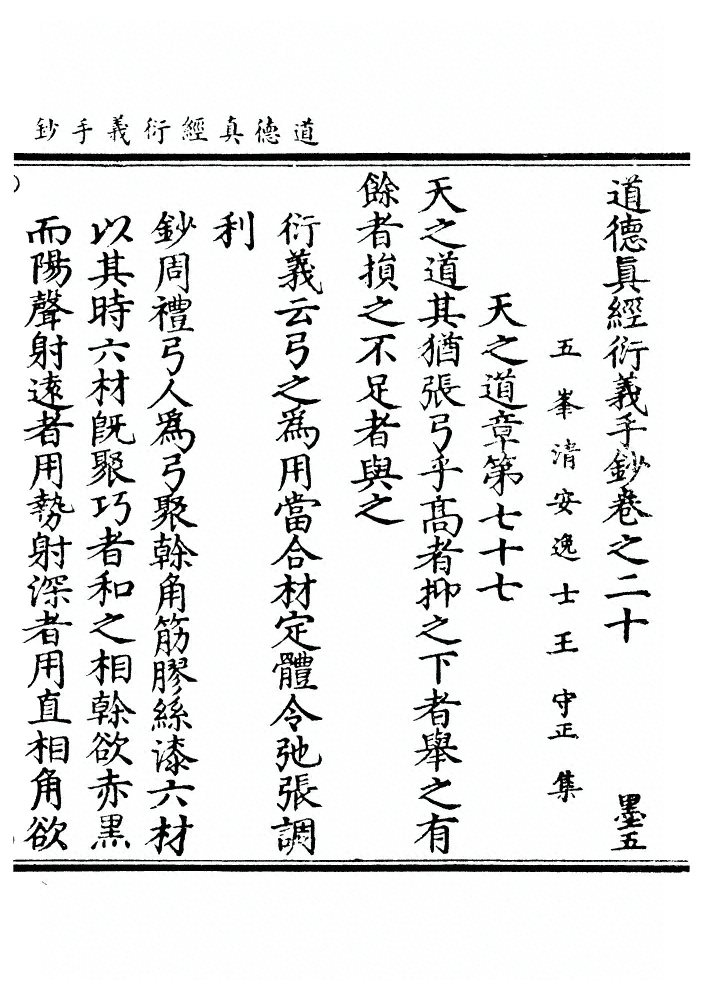 道德真經衍義手鈔
道德眞經衍義手鈔卷之二十 墨五
五峯清安逸士王守正集
天之道章第七十七
天之道其猶張弓乎高者抑之下者舉之有
餘者損之不足者與之
衍義云弓之爲用當合材定體令弛張調
利
鈔周禮弓人爲弓聚榦角筋膠絲漆六材
以其時六材旣聚巧者和之相榦欲赤黑
而陽聲射遠者用勢射深者用直相角欲